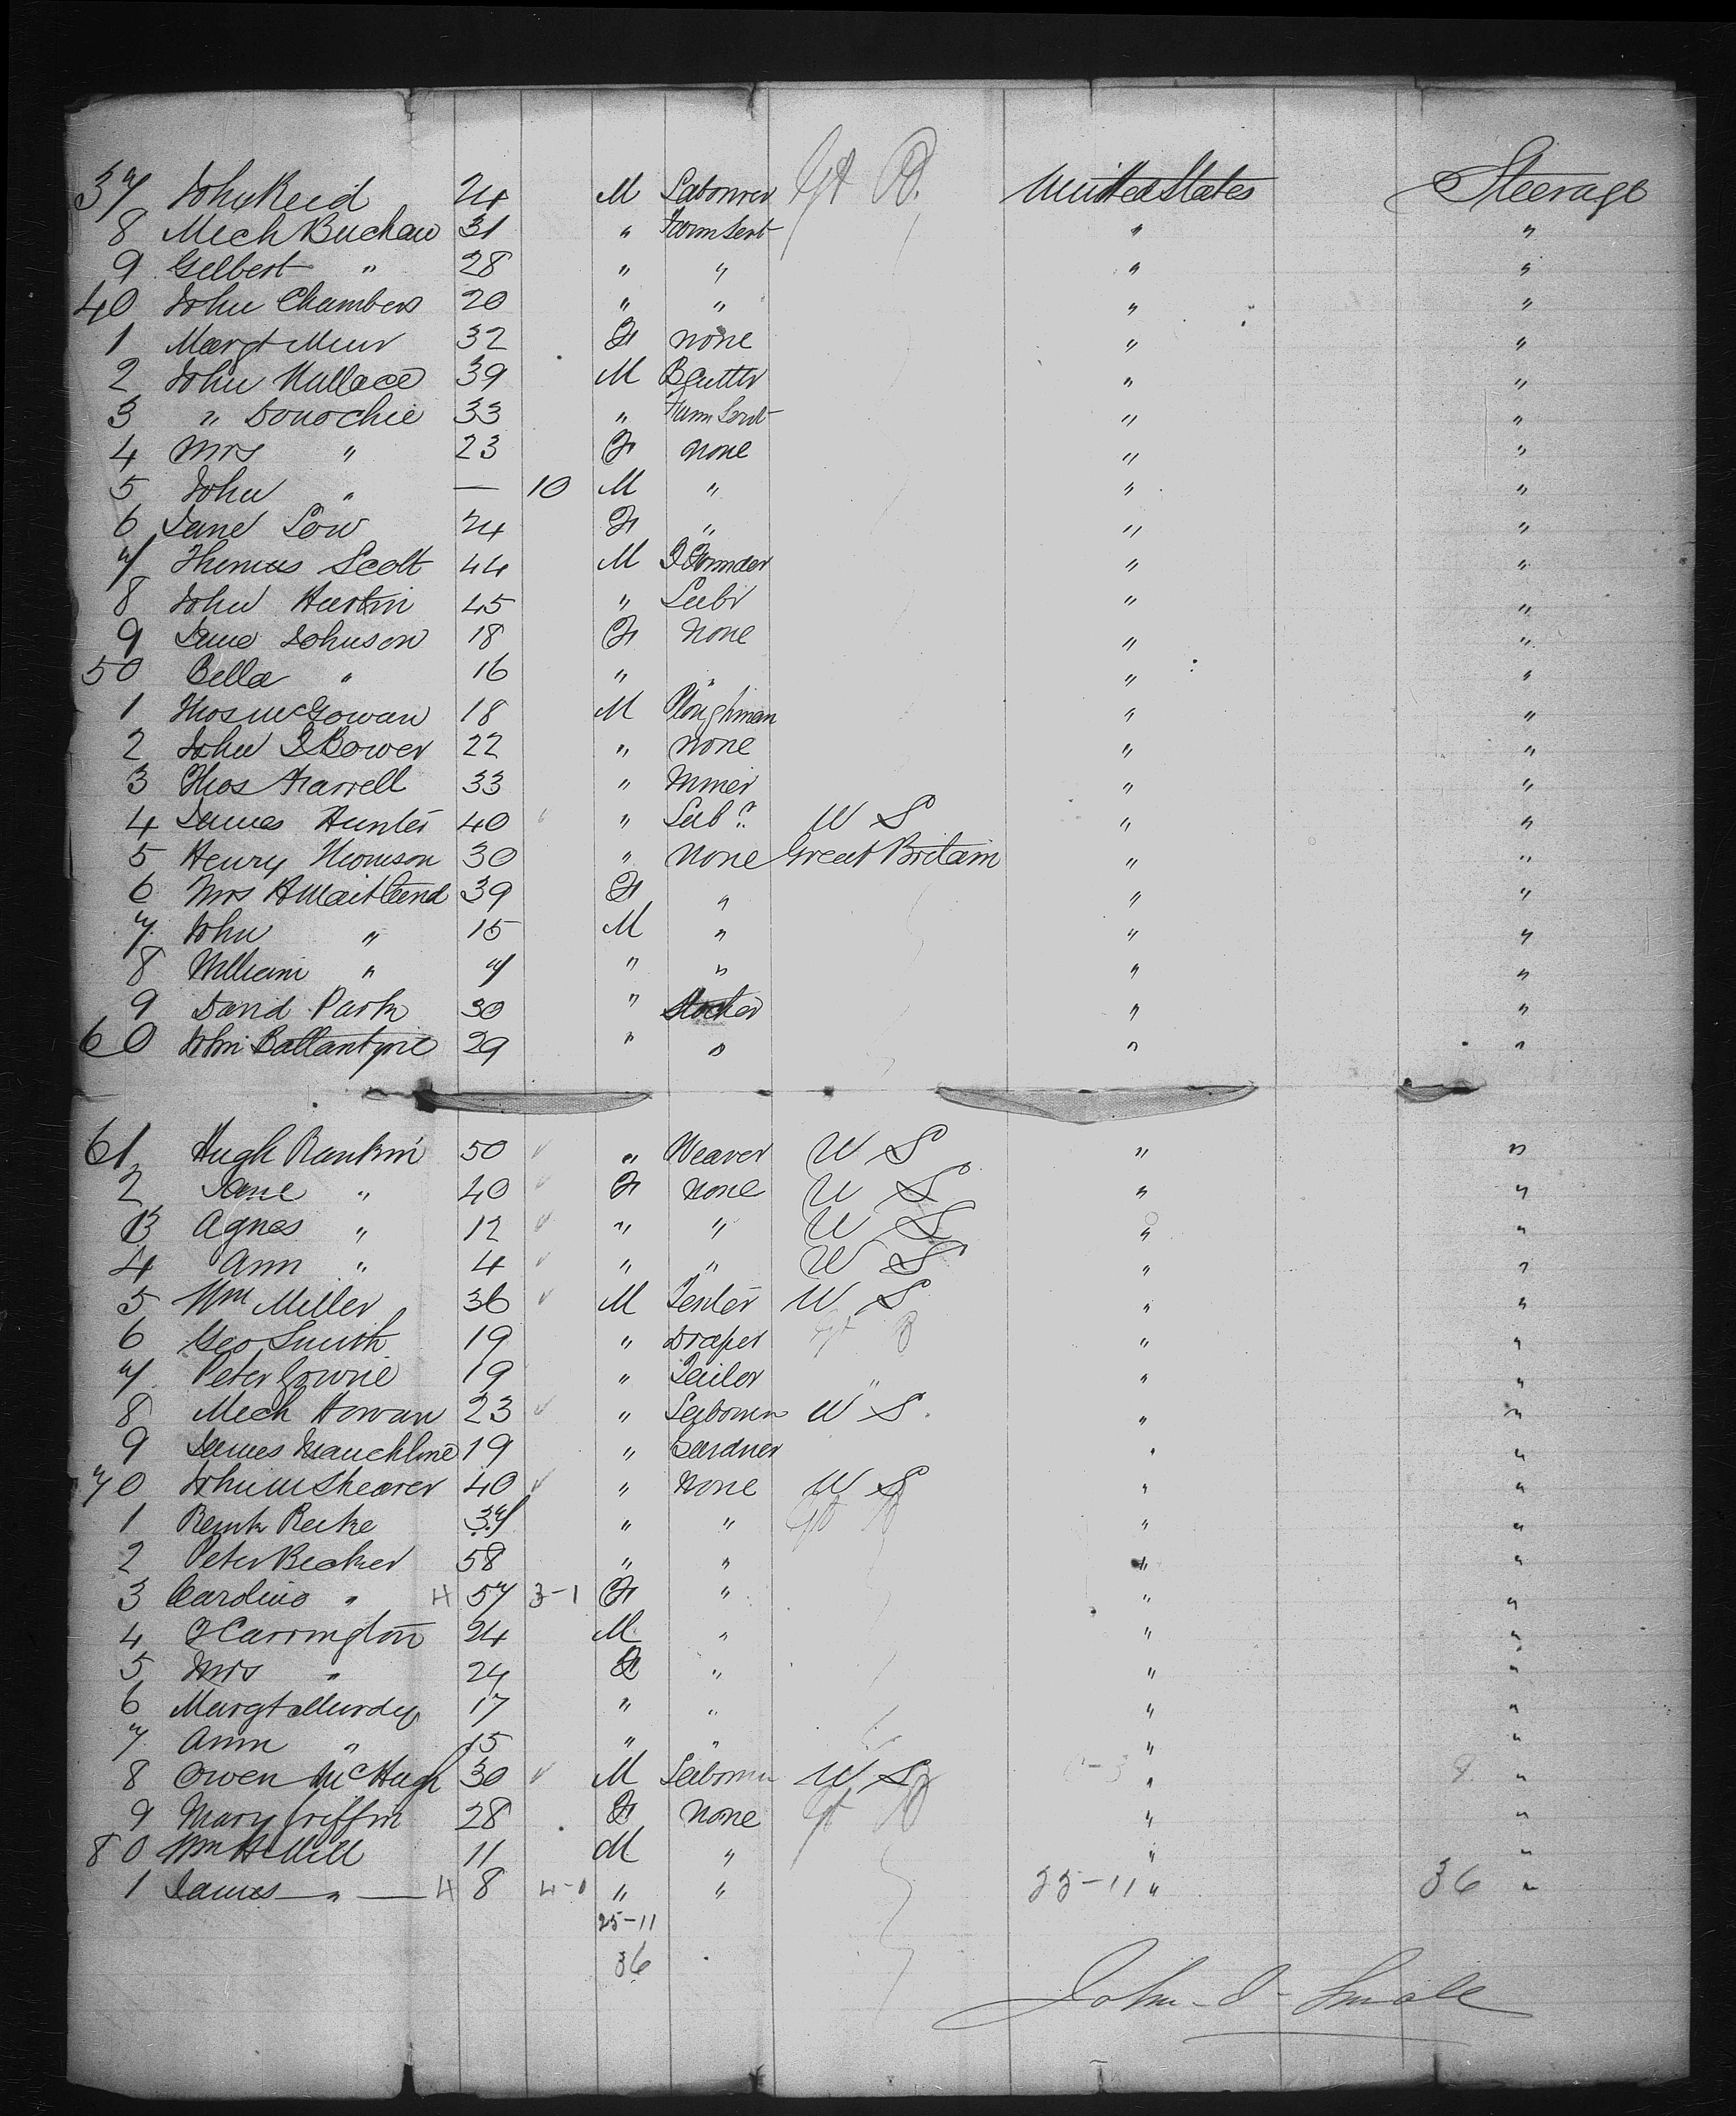 37 John Reid 24 M Labourer Gt B. United States Steerage
8 Mich Buchan 31 " Farm Servt " "
9 Gilbert " 28 " " " "
40 John Chambers 20 " " " "
1 Margt Muir 32 F none " "
2 John Wallace 39 M B Cutter " "
3 " Donochie 33 " Farm Servt " "
4 Mrs " 23 F none " "
5 John " — 10 M " " "
6 Jane Low 24 F " " "
7 Thomas Scott 44 M I Founder " "
8 John Hastin 45 " Labr " "
9 Jane Johnson 18 F none " "
50 Bella " 16 " " " "
1 Thos McGowan 18 M Ploughman " "
2 John I Bower 22 " none " "
3 Thos Farrell 33 " Miner " "
4 James Hunter 40 " Labr W S " "
5 Henry Thomson 30 " none Great Britain " "
6 Mrs H Maitland 39 F " " "
7 John " 15 M " " "
8 William " 7 " " " "
9 David Park 30 " " "
60 John Ballantyne 29 " " " "
61 Hugh Rankin 50 " Weaver W S " "
2 Jane " 40 F none W S " "
3 Agnes " 12 " " W S " "
4 Ann " 4 " " W S " "
5 Wm Miller 36 M Tenter W S " "
6 Geo Smith 19 " Draper Gt B " "
7 Peter Gowrie 19 " Tailor " " "
8 Mich Howan 23 " Labourer W S. " "
9 James Mauchline 19 " Gardner " "
70 John M Shearer 40 " none W S " "
1 Remk Reike 37 " " Gt B " "
2 Peter Becker 58 " " " "
3 Caroline " 4 57 3-1 F " " "
4 J Carrington 24 M " " "
5 Mrs " 24 F " " "
6 Margt Murdy 17 " " " "
7 Ann " 15 " " " "
8 Owen McHugh 30 M Labourer W S " "
9 Mary Griffin 28 F none Gt B " "
80 Wm H Mill 11 M " " "
1 James " 4 8 4-0 " " 25-11 " 36 "
25-11
36
John Small